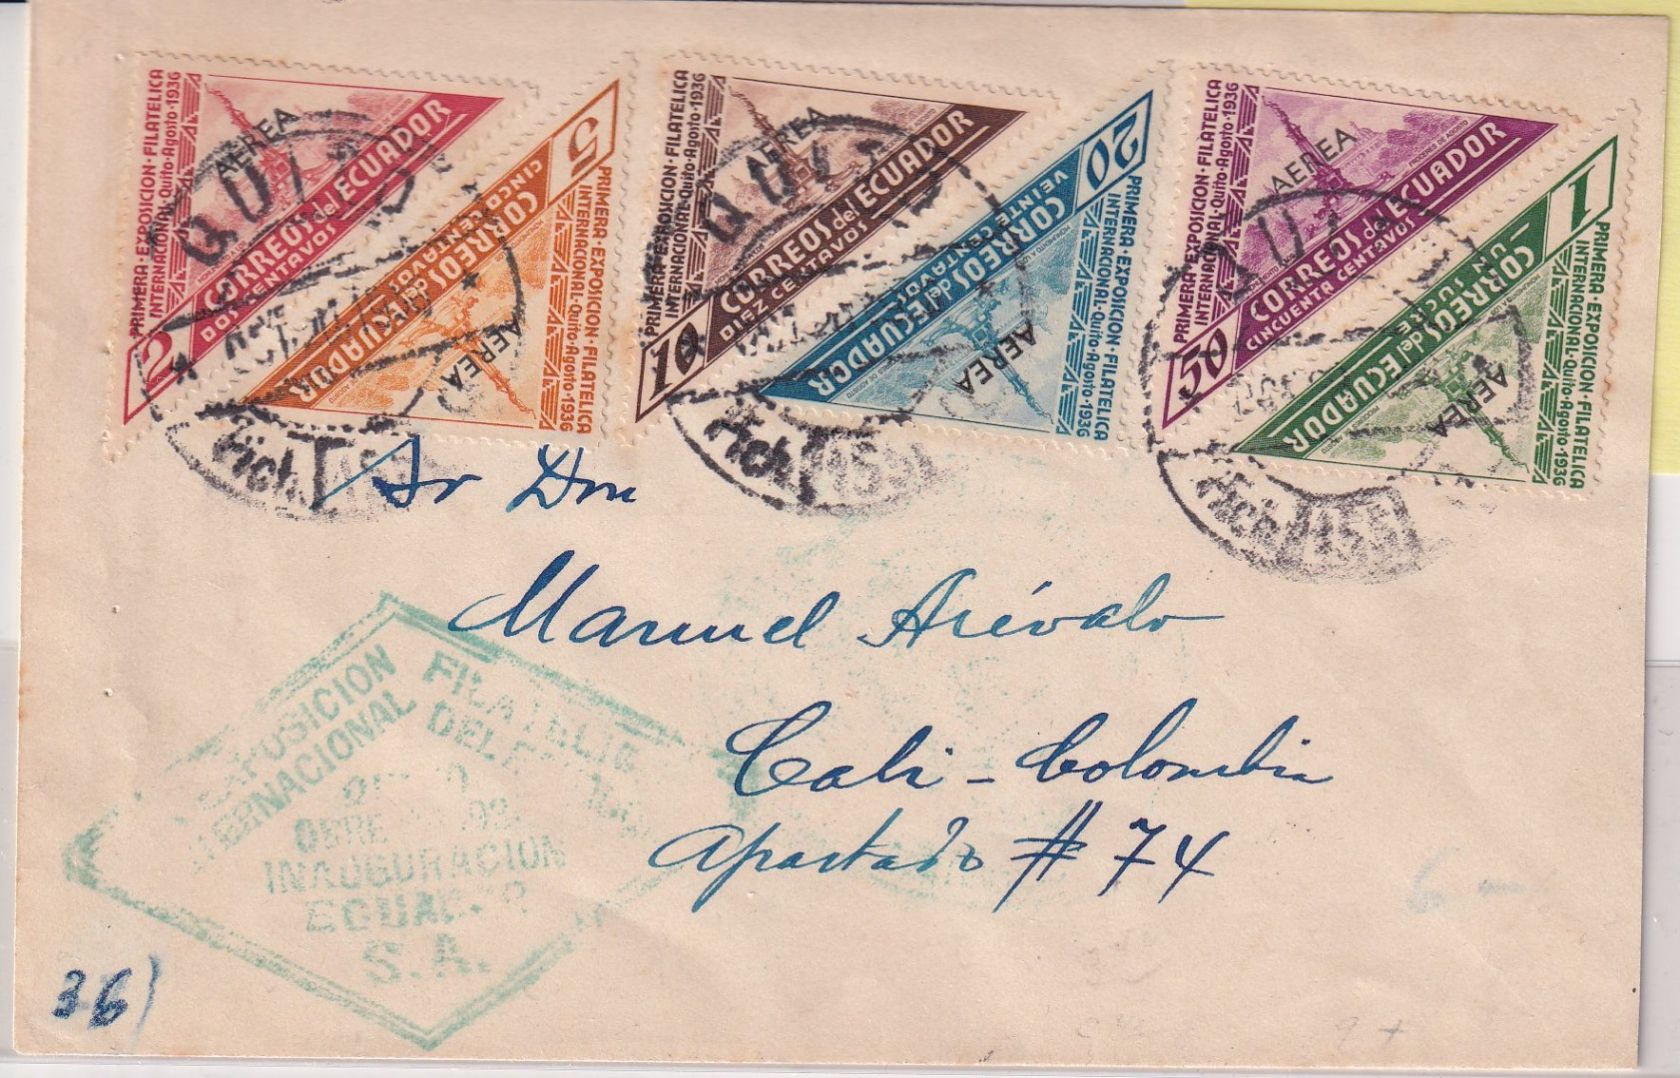 PRIMERA·EXPOSICION·FILATELICA
INTERNACIONAL·Quito·Agosto·1936
AEREA
2 CORREOS del ECUADOR
DOS CENTAVOS
5
CINCO CENTAVOS
CORREOS del ECUADOR
PRIMERA·EXPOSICION·FILATELICA
INTERNACIONAL·Quito·Agosto·1936
AEREA
PRIMERA·EXPOSICION·FILATELICA
INTERNACIONAL·Quito·Agosto·1936
AEREA
10 CORREOS del ECUADOR
DIEZ CENTAVOS
20
VEINTE CENTAVOS
CORREOS del ECUADOR
PRIMERA·EXPOSICION·FILATELICA
INTERNACIONAL·Quito·Agosto·1936
AEREA
PRIMERA·EXPOSICION·FILATELICA
INTERNACIONAL·Quito·Agosto·1936
AEREA
50 CORREOS del ECUADOR
CINCUENTA CENTAVOS
1
UN SUCRE
CORREOS del ECUADOR
PRIMERA·EXPOSICION·FILATELICA
INTERNACIONAL·Quito·Agosto·1936
AEREA
QUITO
QUITO
QUITO
Pich. 155
Pich. 155
Pich. 155
Sr Don
Manuel Arévalo
Cali - Colombia
Apartado # 74
EXPOSICION FILATELIC
INTERNACIONAL DEL
INAUGURACION
ECUADOR
S.A.
36)
6 -
9 +